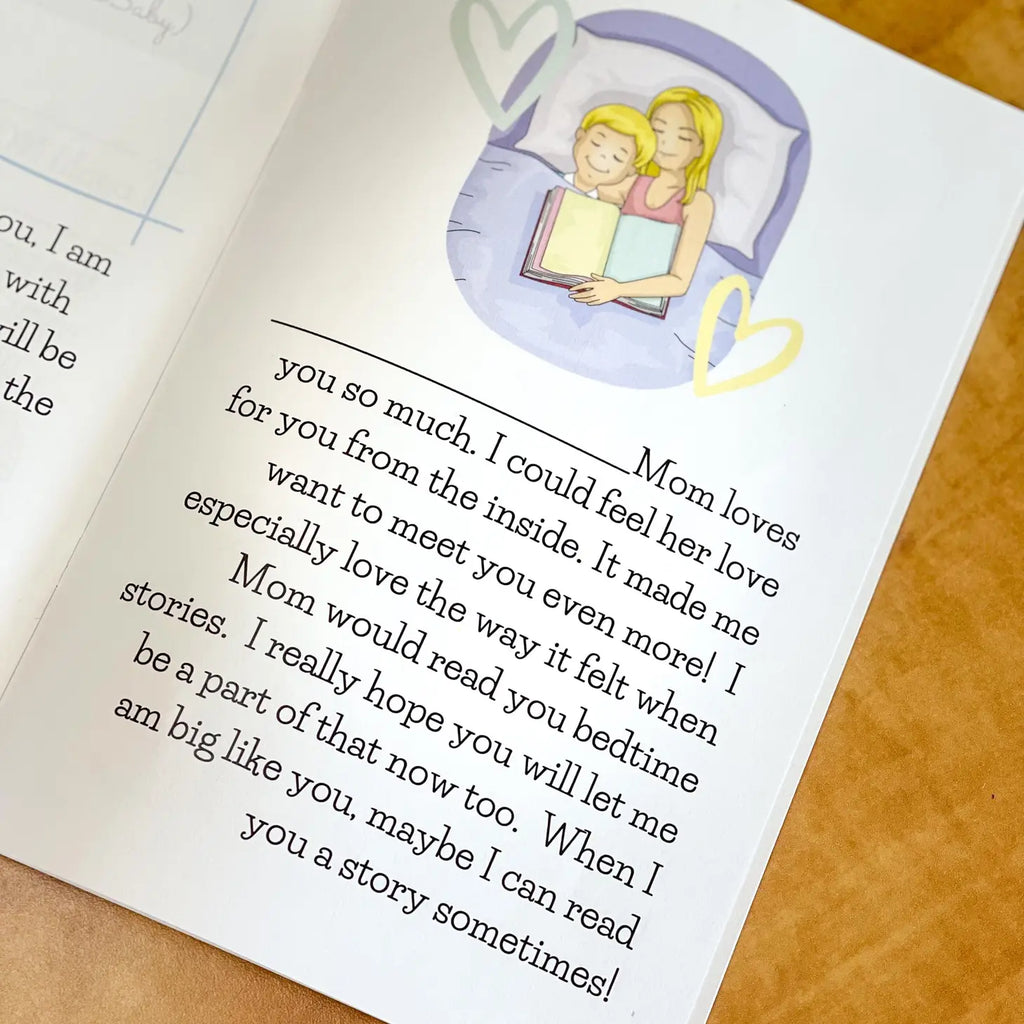 Baby)
ou, I am
with
ill be
the
____________ Mom loves
you so much. I could feel her love
for you from the inside. It made me
want to meet you even more! I
especially love the way it felt when
Mom would read you bedtime
stories. I really hope you will let me
be a part of that now too. When I
am big like you, maybe I can read
you a story sometimes!